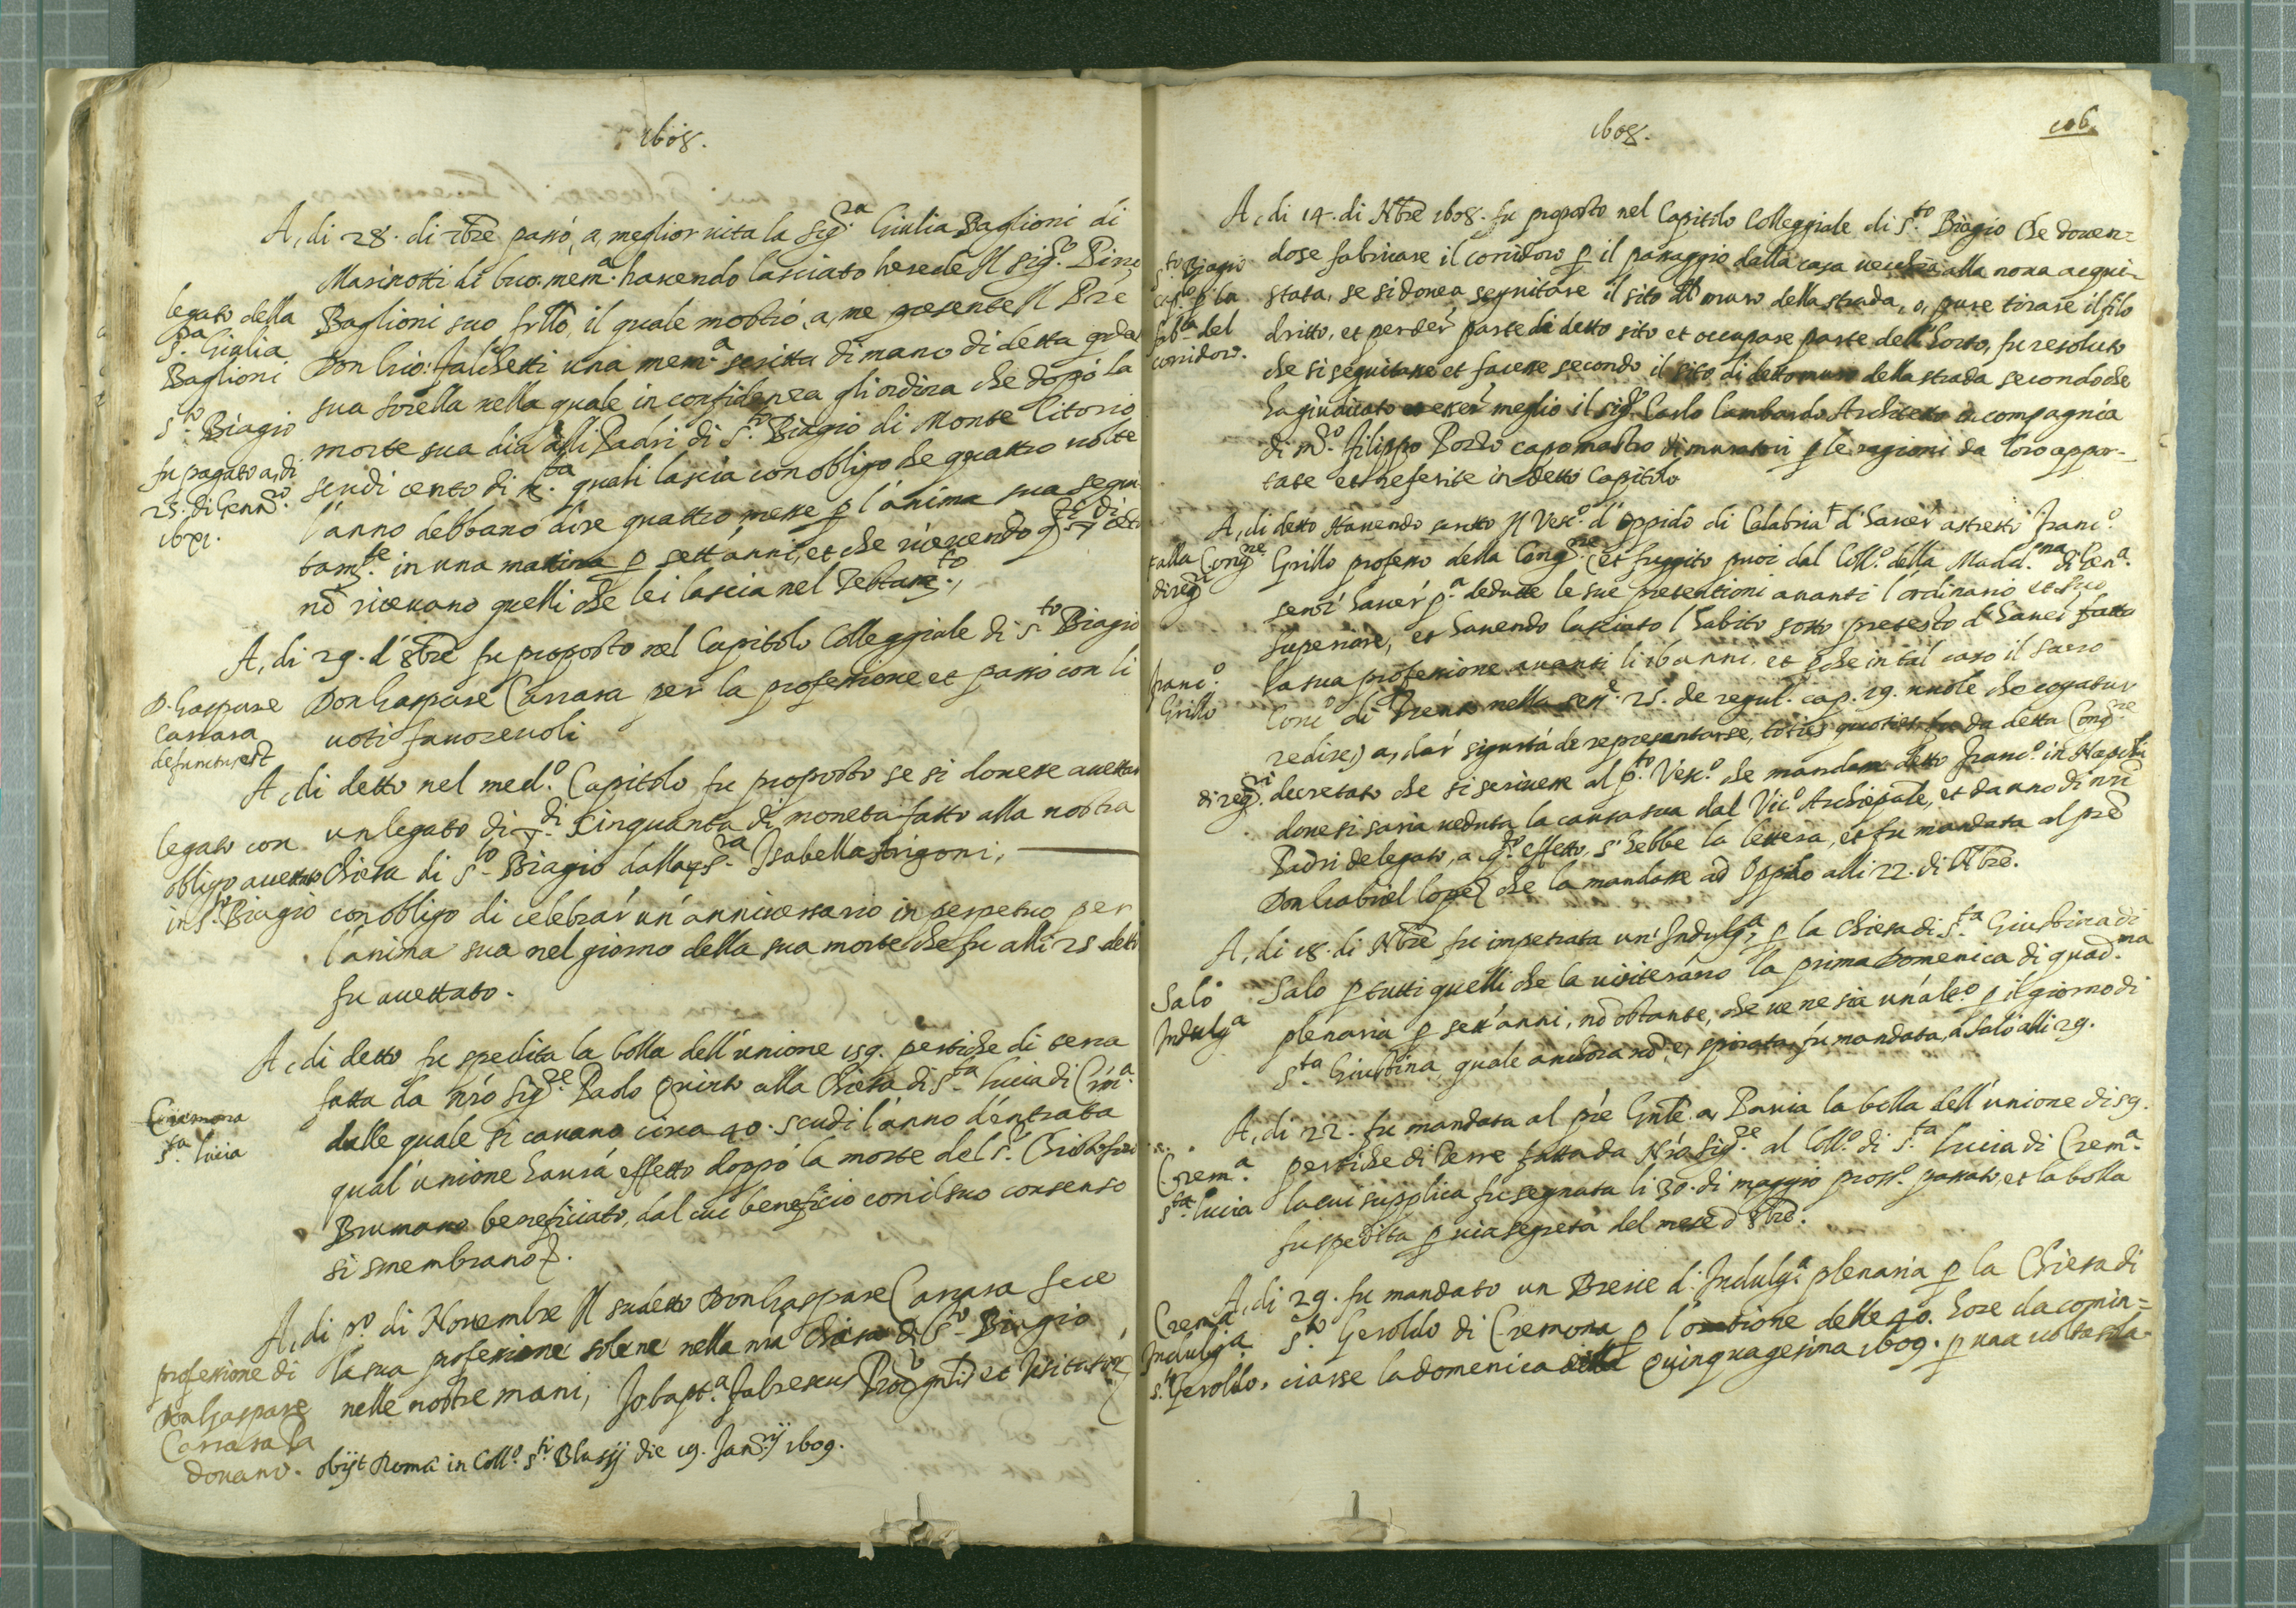 1608.
A, di 28. di 7bre passò, a, meglior vita la Sig.ra Giulia Baglioni di
Marinotti di buo. mem.a havendo lasciato herede Il sig.ro Pirro
legato della
S.ra Giulia
Baglioni
S.to Biagio
fu pagato a, di
25. di Genn.o
1611.
Baglioni suo frllo, il quale mostrò, a, me presente Il Pre
Don Gio: Falchetti una mem.a scritta di mano di detta
sua sorella nella quale in confidenza gli ordina che dopò la
morte sua dia alli Padri di S.to Biagio di Monte Citorio
scudi cento di m.ta quali lascia con obligo che quattro volte
l'anno debbano dire quattro messe p l'anima sua
tam.te in una matina p sett'anni, et che ricevendo
nō ricevano quelli che lei lascia nel Testam.to,
A, di 29. d'8bre fu proposto nel Capitolo Colleggiale di S.to Biagio
D. Gaspare
Carrara
defunctus est
Don Gaspare Carrara per la professione et passò con li
voti favorevoli
A, di detto nel med.o Capitolo fu proposto se si dovesse accettar
legato con
obligo accettato
in S.to Biagio
un legato di di Cinquanta di moneta fatto alla nostra
Chiesa di S.to Biagio dalla q S.ra Isabella Arigoni,
con obligo di celebrar un'anniversario in perpetuo per
l'anima sua nel giorno della sua morte che fu alli 25 detto
fu accettato.
A, di detto fu spedita la bolla dell'unione 159. pertiche di terra
Cremona
S.ta Lucia
fatta da nro Sig.re Paolo Quinto alla Chiesa di S.ta Lucia di Crem.a
dalle quale si cavano circa 40. scudi l'anno d'entrata
qual'unione haurà effetto doppò la morte del S.r
Brumano beneficiato, dal cui beneficio con il suo consenso
si smembrano.
A, di p.o di Novembre Il sudetto Don Gaspare Carrara fece
professione di
Don Gaspare
Carrara Pa
dovano.
la sua professione solene nella nra Chiesa di S.to Biagio
nelle nostre mani, Jo. bapt.a Fabrescus et Visitator
obijt Roma in Coll.o S.ti Blasij die 19. Jan.rij 1609.
1608.
106.
A, di 14. di Nbre 1608. fu proposto nel Capitolo Colleggiale di S.to Biagio che doven=
S.to Biagio
p la
del
corridoro.
dose fabricare il corridoro p il passaggio dalla casa vecchia alla nova acqui-
stata, se si doveva seguitare il sito del muro della strada, o, pure tirare il filo
dritto, et perder parte di detto sito et occupare parte dell'horto, fu resoluto
che si seguitasse et facesse secondo il sito di detto muro della strada secondo che
ha giudicato esser meglio il sig.r Carlo Lambardo Architetto in compagnia
di m.o Filippo Porto capo mastro di muratori p le ragioni da loro appor-
tate et referite in detto Capitolo
A, di detto Havendo scritto Il Vesc.o d'Oppido di Calabria d'haver astretto Franc.o
alla Cong.ne
Franc.o
Grillo
Grillo professo della Cong.ne (et fuggito puoi dal Coll.o della Madd.na di Gen.a
senz'haver p.a dedutte le sue pretentioni avanti l'ordinario et suo
superiore, et havendo lasciato l'habito sotto pretesto d'haver fatto
la sua professione avanti li 16 anni, et pche in tal caso il sacro
Conc.o di Trento nella sess. 25. de regul. cap. 19. vuole che cogatur
redire,) a, dar sigurtà de representarse, toties quoties da detta Cong.ne
decretato che si scrivesse al p.to Vesc.o che mandasse detto Franc.o in Napoli
dove si saria veduta la causa sua dal Vic.o Archiepale, et da uno di nri
Padri delegato, a q.to effetto, s'hebbe la lettera, et fu mandata al pre
Don Gabriel Lopez che la mandasse ad Oppido alli 22. di Nbre.
A, di 18. di Nbre fu impetrata un'Indulg.a p la Chiesa di S.ta Giustina di
Salò
Indulg.a
Salo p tutti quelli che la visiterano la prima Domenica di quad.ma
plenaria p sett'anni, nō obstante, che ve ne sia un'alt.o p il giorno di
S.ta Giustina quale anchora nō è, spirata, fu mandata, a Salò alli 29.
A, di 22. fu mandata al pre Gnle a, Pavia la bolla dell'unione di 59.
Crem.a
S.ta Lucia
pertiche di Terre fatta da Nro Sig.re al Coll.o di S.ta Lucia di Crem.a
la cui supplica fu segnata li 30. di maggio pross.o passato, et la bolla
fu spedita p via segreta del mese d 8bre.
A, di 29. fu mandato un Breve d'Indulg.a plenaria p la Chiesa di
Crema
Indulg.a
S. Geroldo.
S.to Geroldo di Cremona p l'oratione delle 40. hore da comin=
ciarse la domenica della Quinquagesima 1609. p una volta sola.